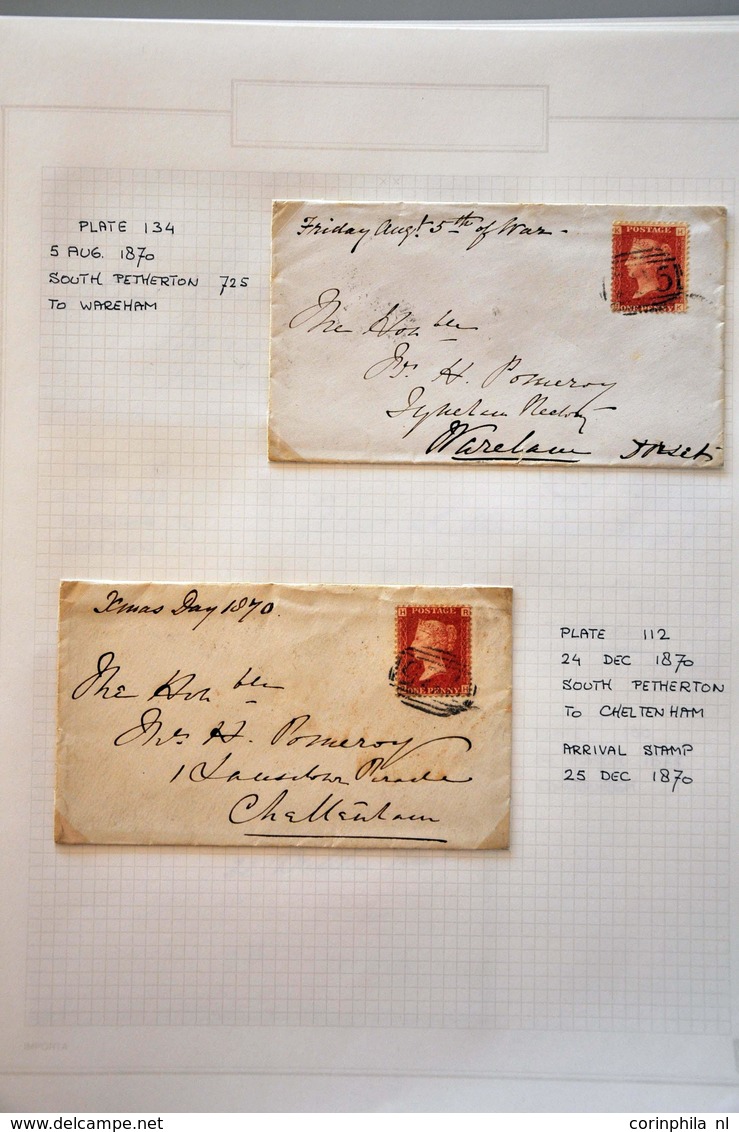 PLATE 134
5 AUG. 1870
SOUTH PETHERTON 725
TO WAREHAM
Friday Augt. 5th of War -
POSTAGE
ONE PENNY
5
The Honble
Mrs H. Pomeroy
Wareham Dorset
Xmas Day 1870.
H POSTAGE R
ONE PENNY
The Honble
Mrs H. Pomeroy
1 Lansdown Parade
Cheltenham
PLATE 112
24 DEC 1870
SOUTH PETHERTON
TO CHELTENHAM
ARRIVAL STAMP
25 DEC 1870
IMPORTA
delcampe.net
corinphila nl